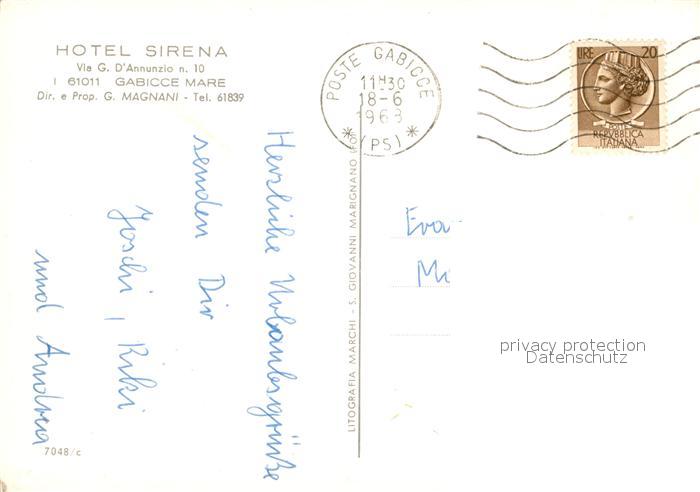 HOTEL SIRENA
Via G. D'Annunzio n. 10
I 61011 GABICCE MARE
Dir. e Prop. G. MAGNANI - Tel. 61839
POSTE GABICCE
11H30
18-6
1968
(PS)
LIRE 20
POSTE
REPVBBLICA
ITALIANA
Herzliche Urlaubsgrüße
senden Dir
Joschi, Kiki
und Andrea
LITOGRAFIA MARCHI - S. GIOVANNI MARIGNANO (FO)
Eva
Mi
privacy protection
Datenschutz
7048/c